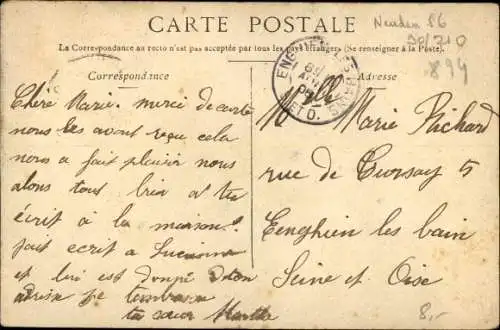 CARTE POSTALE
La Correspondance au recto n'est pas acceptée par tous les pays étrangers (Se renseigner à la Poste).
Correspondance
Adresse
ENGHIEN-LES-BAINS
ET O.
Chère Marie. merci de carte
nous les avont reçu cela
nous a fait plaisir nous
alons tous bien a tu
écrit à la maison.
fait ecrit a
et lui est donné ton
adrise je
ta sœur Marthe
Mlle
Marie Richard
rue de Cursay 5
Eenghien les bain
Seine et Oise
894
8,-